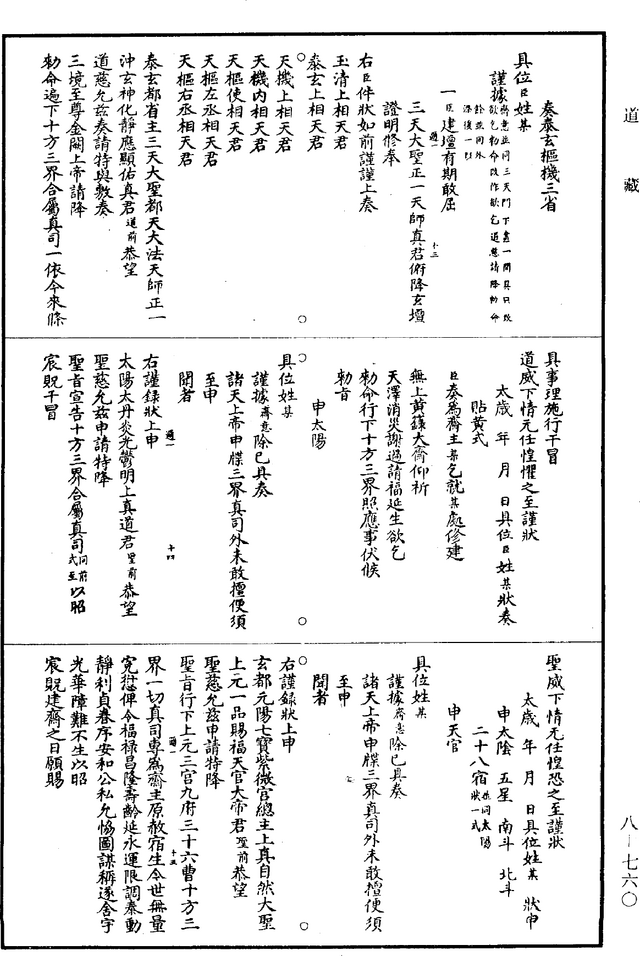 道藏
奏泰玄樞機三省
具位臣姓某
謹據齋意並同三天門下盡一間具只改
欲乞勑命改作欲乞道慈請降勑命
餘並同外
深後一扣
一臣建壇有期敢屈
三天大聖正一天師真君俯降玄壇
證明修奉
右臣件狀如前謹謹上奏
玉清上相天君
泰玄上相天君
天機上相天君
天機內相天君
天樞使相天君
天樞左丞相天君
天樞右丞相天君
泰玄都省主三天大聖都天大法天師正一
沖玄神化靜應顯佑真君道前恭望
道慈允茲奏請特與敷奏
三境至尊金闕上帝請降
勑命遍下十方三界合屬真司一依今來條
具事理施行干冒
道威下情无任惶懼之至謹狀
太歲年月日具位臣姓某狀奏
貼黃式
臣奏為齋主某乞就某處修建
無上黃籙大齋仰祈
天澤消災謝過請福延生欲乞
勑命行下十方三界照應事伏候
勑旨
申太陽
具位姓某
謹據齋意除已具奏
諸天上帝申牒三界真司外未敢擅便須
至申
聞者
右謹錄狀上申
太陽太丹炎光鬱明上真道君聖前恭望
聖慈允茲申請特降
聖旨宣告十方三界合屬真司同前式至以昭
宸貺干冒
聖威下情无任惶恐之至謹狀
太歲年月日具位姓某狀申
申太陰五星南斗北斗
二十八宿並同太陽狀一式
申天官
具位姓某
謹據齋意除已具奏
諸天上帝申牒三界真司外未敢擅便須
至申
聞者
右謹錄狀上申
玄都元陽七寶紫微宮總主上真自然大聖
上元一品賜福天官大帝君聖前恭望
聖慈允茲申請特降
聖旨行下上元三官九府三十六曹十方三
界一切真司專為齋主原赦宿生今世無量
寃愆俾令福祿昌隆壽齡延永運限調泰動
靜利貞眷序安和公私允恊圖謀稱遂舍宇
光華障難不生以昭
宸貺建齋之日願賜
八—七六〇